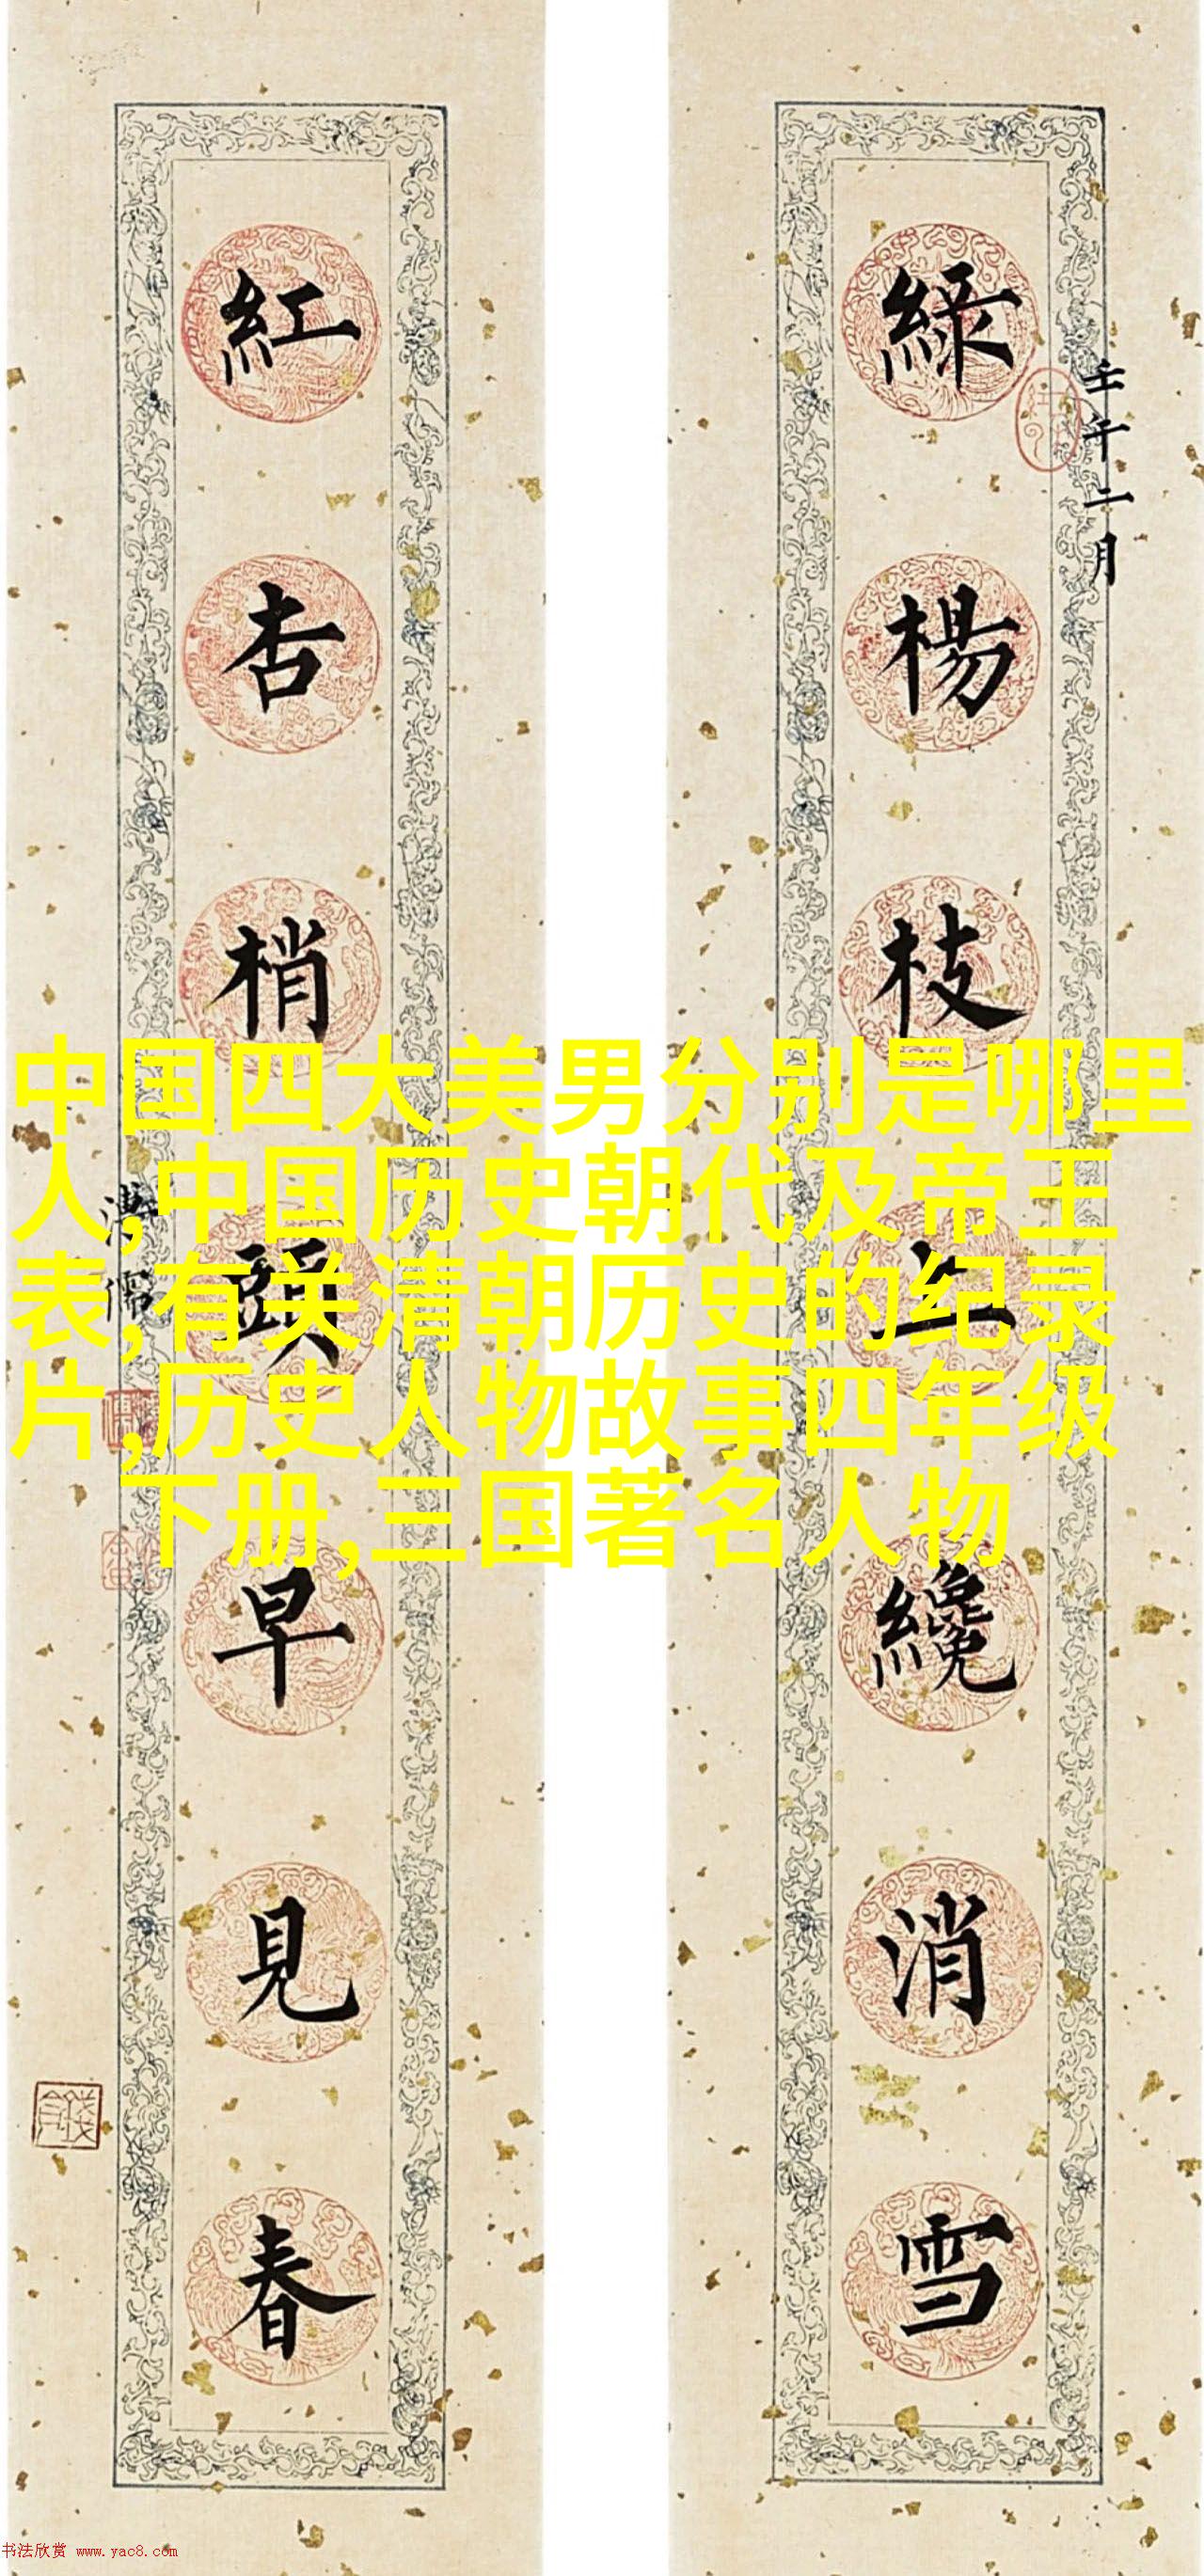 綠楊枝上纔消雪
壬午二月
紅杏梢頭早見春
溥儒
中国四大美男分别是哪里
人,中国历史朝代及帝王
表,有关清朝历史的纪录
片,历史人物故事四年级
下册,三国著名人物
书法欣赏 www.yac8.com